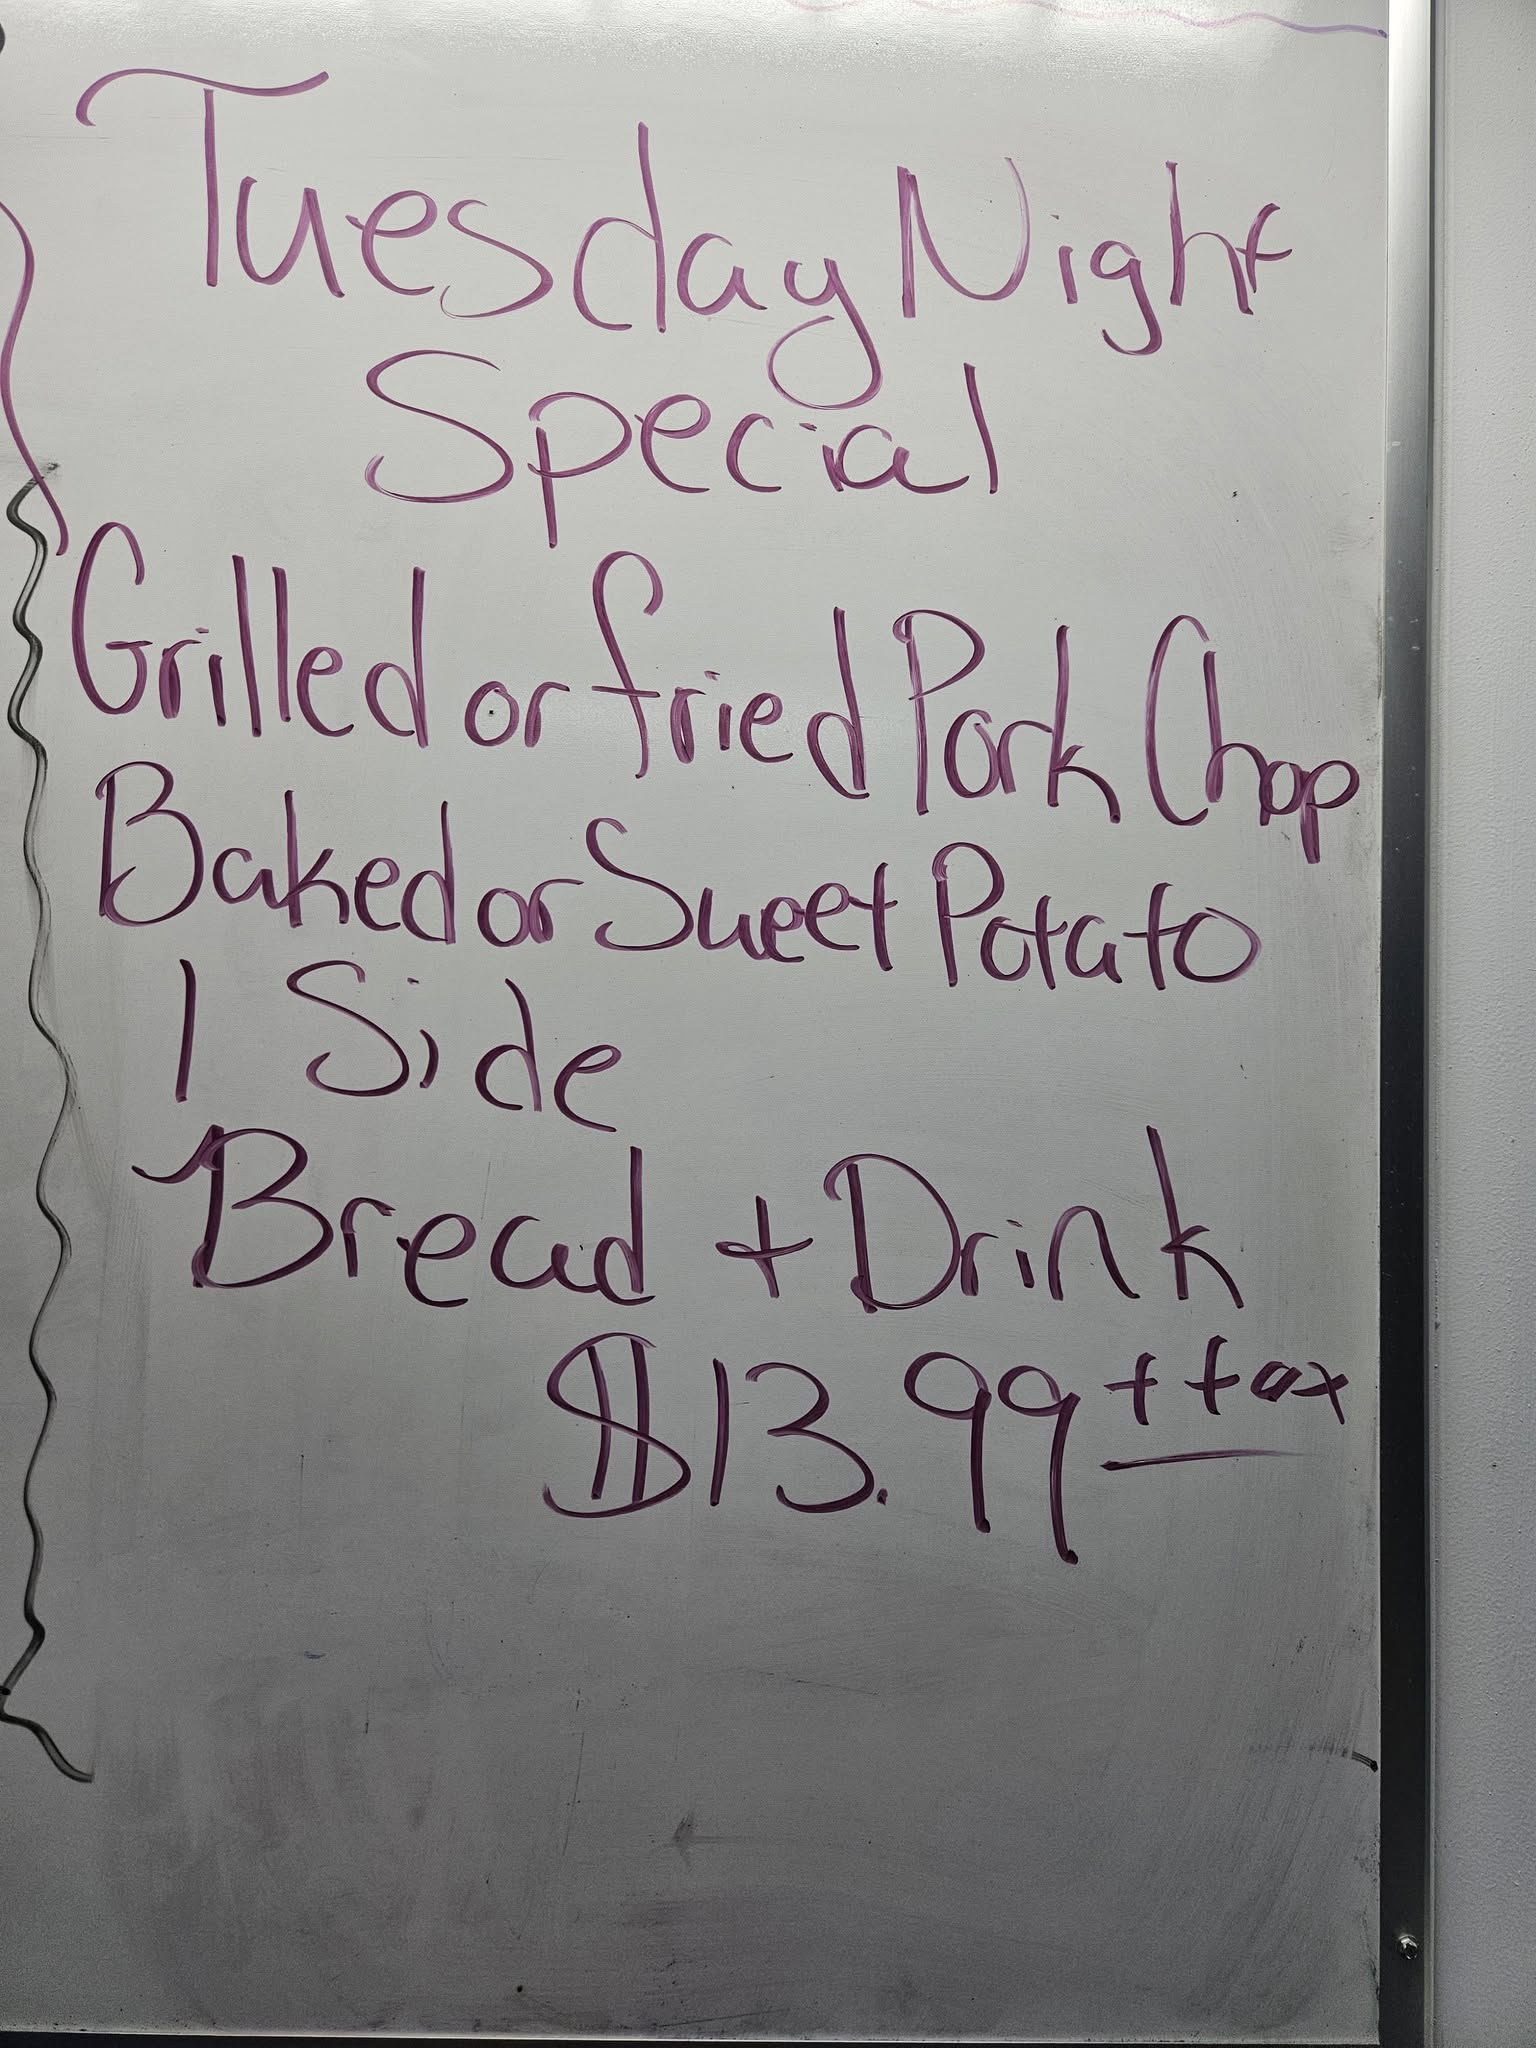 Tuesday Night
Special
Grilled or fried Pork Chop
Baked or Sweet Potato
1 Side
Bread + Drink
$13.99 + tax